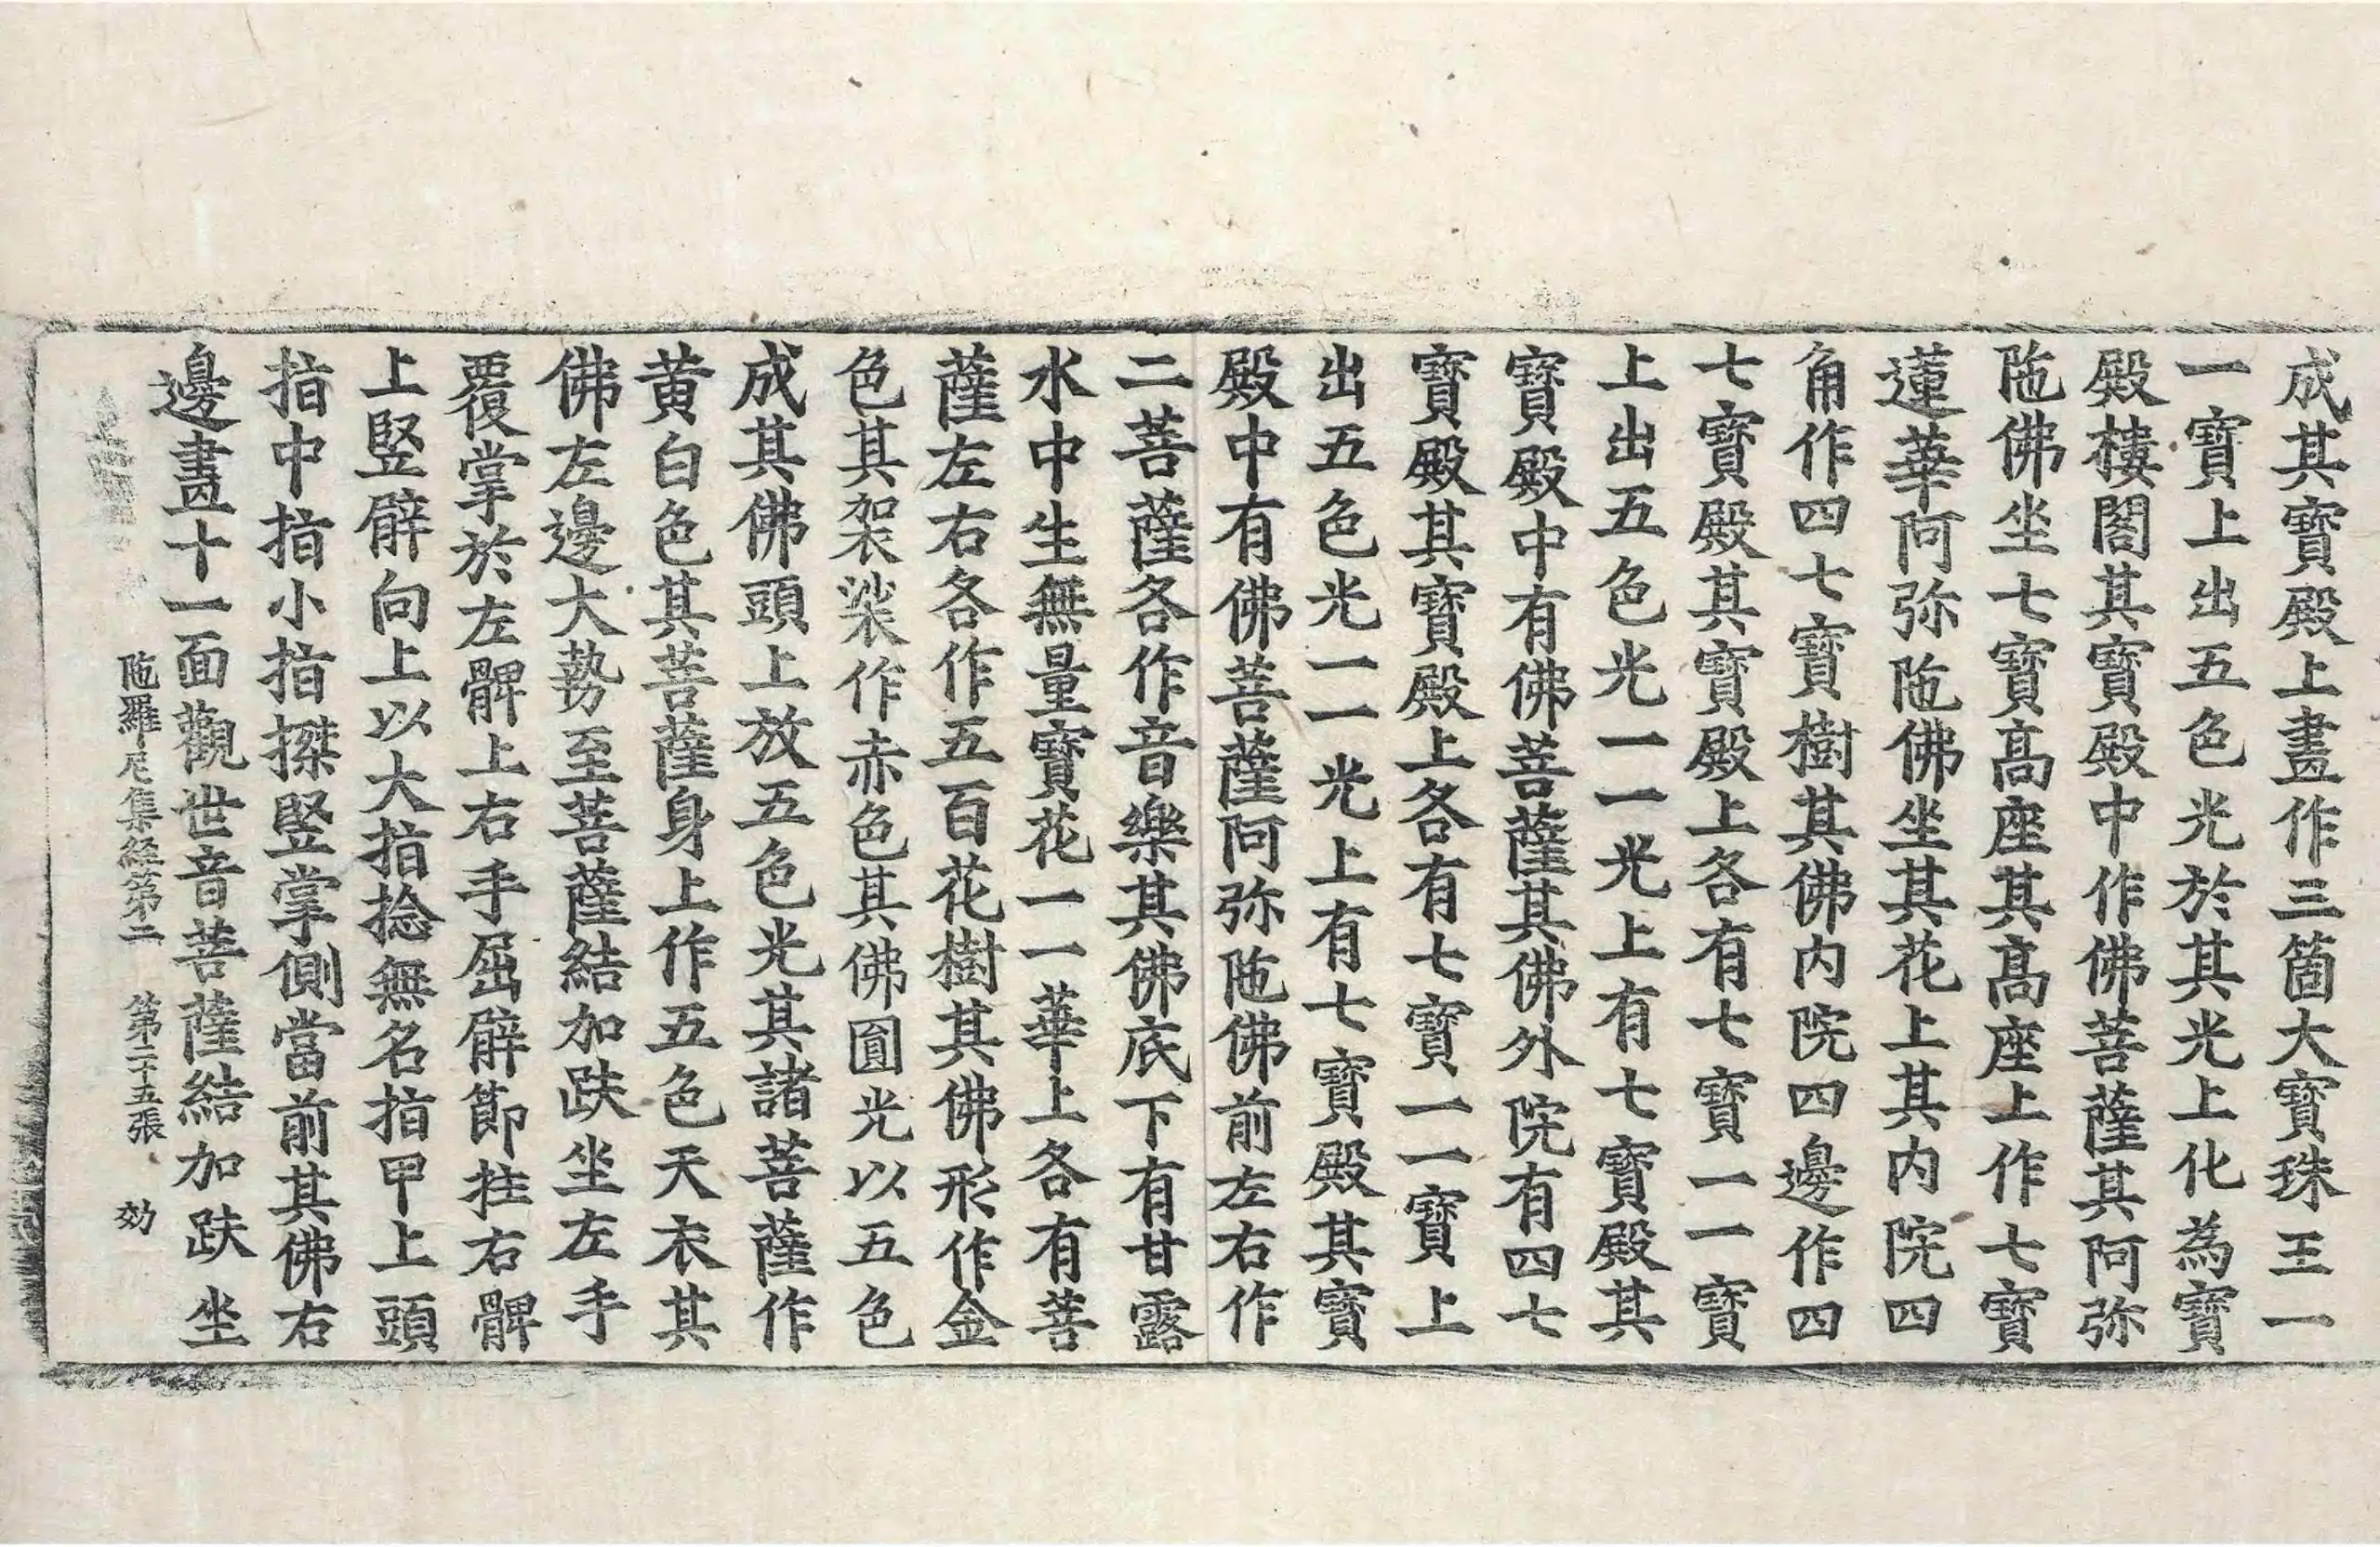 成其寶殿上畫作三箇大寶珠王一
一寶上出五色光於其光上化為寶
殿樓閣其寶殿中作佛菩薩其阿弥
陁佛坐七寶髙座其髙座上作七寶
蓮華阿弥陁佛坐其花上其内院四
角作四七寶樹其佛内院四邊作四
七寶殿其寶殿上各有七寶一一寶
上出五色光一一光上有七寶殿其
寶殿中有佛菩薩其佛外院有四七
寶殿其寶殿上各有七寶一一寶上
出五色光一一光上有七寶殿其寶
殿中有佛菩薩阿弥陁佛前左右作
二菩薩各作音樂其佛底下有甘露
水中生無量寶花一一華上各有菩
薩左右各作五百花樹其佛形作金
色其袈裟作赤色其佛圎光以五色
成其佛頭上放五色光其諸菩薩作
黄白色其菩薩身上作五色天衣其
佛左邊大勢至菩薩結加趺坐左手
覆掌於左髀上右手屈臂節拄右髀
上竪臂向上以大指捻無名指甲上頭
指中指小指搩竪掌側當前其佛右
邊畫十一面觀世音菩薩結加趺坐
陁羅尼集經第二　第二十五張　効